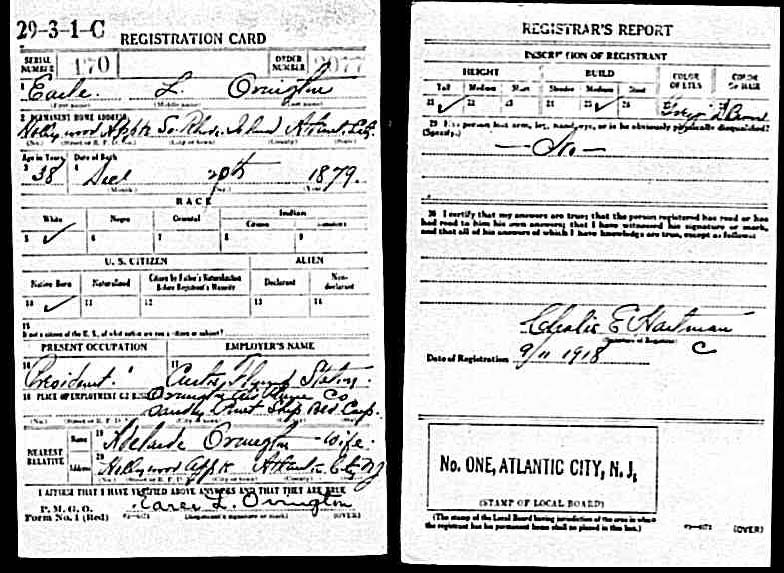 29-3-1-C
REGISTRATION CARD
SERIAL NUMBER 170
ORDER NUMBER 2077
1 Earle L. Ovington
(First name) (Middle name) (Last name)
2 PERMANENT HOME ADDRESS
Hollywood Appts So. Rhode Island Atlantic City
(No.) (Street or R. F. D. No.) (City or town) (County) (State)
Age in Years Date of Birth
3 38 4 Dec 20th 1879.
(Month) (Day) (Year)
RACE
White Negro Oriental Indian
Citizen Noncitizen
5 ✓ 6 7 8 9
U. S. CITIZEN ALIEN
Native Born Naturalized Citizen by Father's Naturalization Before Registrant's Majority Declarant Non-declarant
10 ✓ 11 12 13 14
15
If not a citizen of the U. S., of what nation are you a citizen or subject?
PRESENT OCCUPATION EMPLOYER'S NAME
16 President 17 Curtiss Flying Station
18 PLACE OF EMPLOYMENT OR BUSINESS Ovington Air Plane Co
Ship Bld Corp.
(No.) (Street or R. F. D. No.) (City or town) (County) (State)
NEAREST RELATIVE
Name 19 Adelaide Ovington - Wife.
Address 20 Hollywood Appts Atlantic City NJ
(No.) (Street or R. F. D. No.) (City or town) (County) (State)
I AFFIRM THAT I HAVE VERIFIED ABOVE ANSWERS AND THAT THEY ARE TRUE
P. M. G. O.
Form No. 1 (Red) Earle L. Ovington
(Registrant's signature or mark) (OVER)
REGISTRAR'S REPORT
DESCRIPTION OF REGISTRANT
HEIGHT BUILD COLOR OF EYES COLOR OF HAIR
Tall Medium Short Slender Medium Stout
21 ✓ 22 23 24 25 ✓ 26 Brown
29 Has person lost arm, leg, hand, eye, or is he obviously physically disqualified?
(Specify.)
— No —
30 I certify that my answers are true; that the person registered has read or has
had read to him his own answers; that I have witnessed his signature or mark,
and that all of his answers of which I have knowledge are true, except as follows:
E Hartman
(Signature of Registrar)
Date of Registration 9/11 1918
No. ONE, ATLANTIC CITY, N. J.
(STAMP OF LOCAL BOARD)
(The stamp of the Local Board having jurisdiction of the area in which
the registrant has his permanent home shall be placed in this box.)
(OVER)